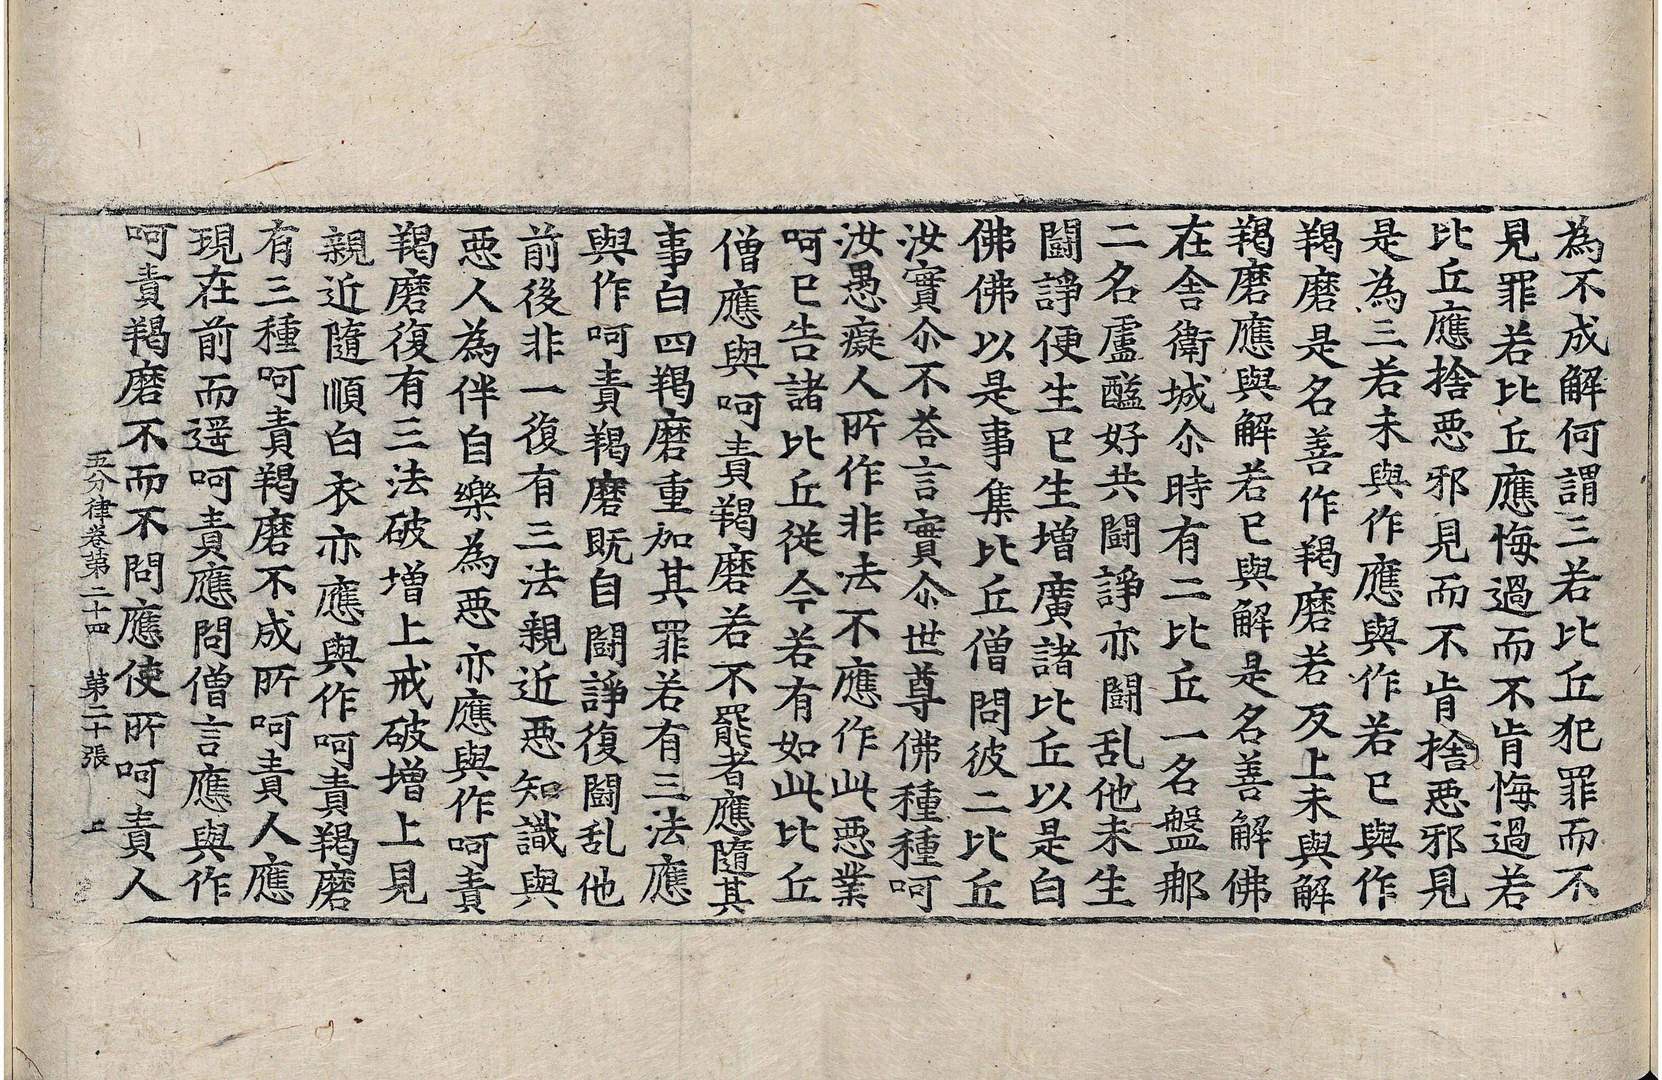 為不成解何謂三若比丘犯罪而不
見罪若比丘應悔過而不肯悔過若
比丘應捨惡邪見而不肯捨惡邪見
是為三若未與作應與作若已與作
羯磨是名善作羯磨若反上未與解
羯磨應與解若已與解是名善解佛
在舍衛城尒時有二比丘一名盤那
二名盧醯好共闘諍亦闘乱他未生
闘諍便生已生增廣諸比丘以是白
佛佛以是事集比丘僧問彼二比丘
汝實尒不荅言實尒世尊佛種種呵
汝愚癡人所作非法不應作此惡業
呵已告諸比丘從今若有如此比丘
僧應與呵責羯磨若不罷者應隨其
事白四羯磨重加其罪若有三法應
與作呵責羯磨既自闘諍復闘乱他
前後非一復有三法親近惡知識與
惡人為伴自樂為惡亦應與作呵責
羯磨復有三法破增上戒破增上見
親近隨順白衣亦應與作呵責羯磨
有三種呵責羯磨不成所呵責人應
現在前而遥呵責應問僧言應與作
呵責羯磨不而不問應使所呵責人
五分律卷第二十四 第二十張 上